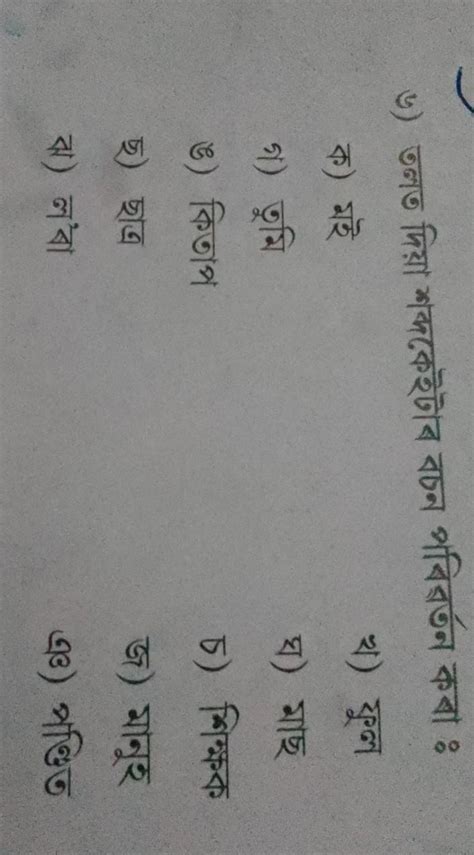 ৩) তলত দিয়া শব্দকেইটাৰ বচন পৰিৱৰ্তন কৰা ঃ
ক) মই খ) ফুল
গ) তুমি ঘ) মাছ
ঙ) কিতাপ চ) শিক্ষক
ছ) ছাত্ৰ জ) মানুহ
ঝ) ল'ৰা ঞ) পণ্ডিত